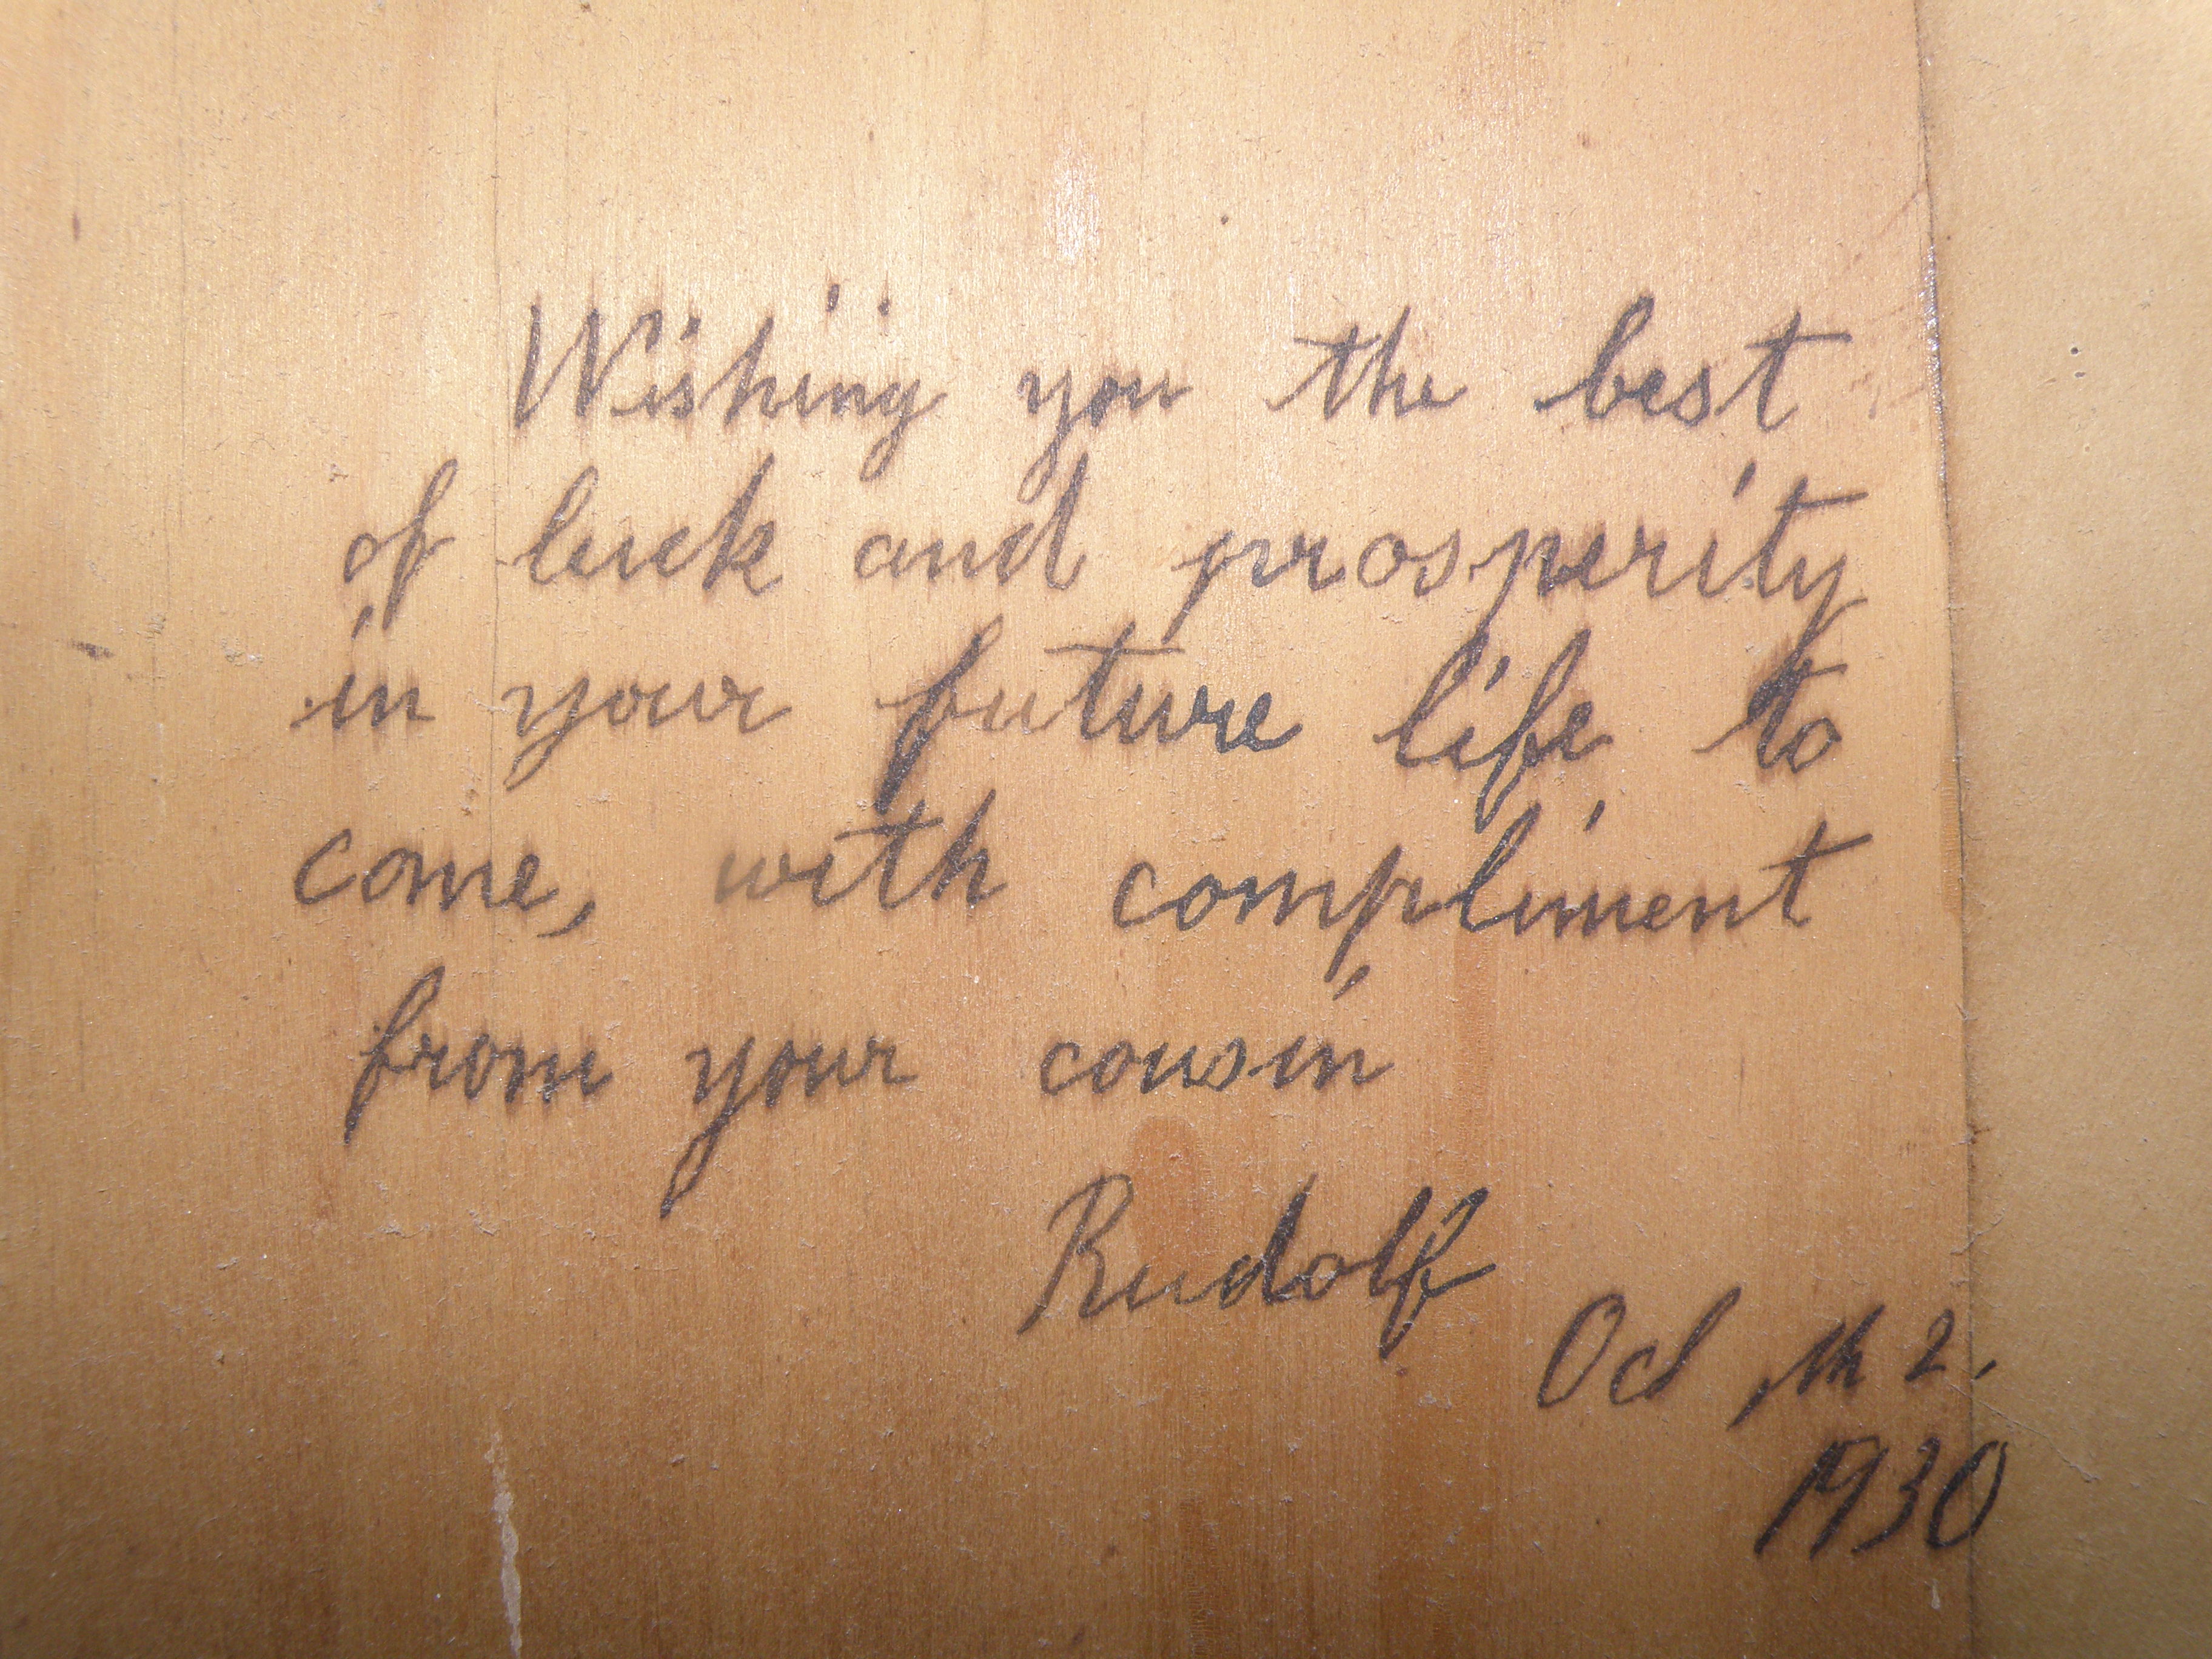 Wishing you the best
of luck and prosperity
in your future life to
come, with compliment
from your cousin
Rudolf
Oct, th 2.
1930